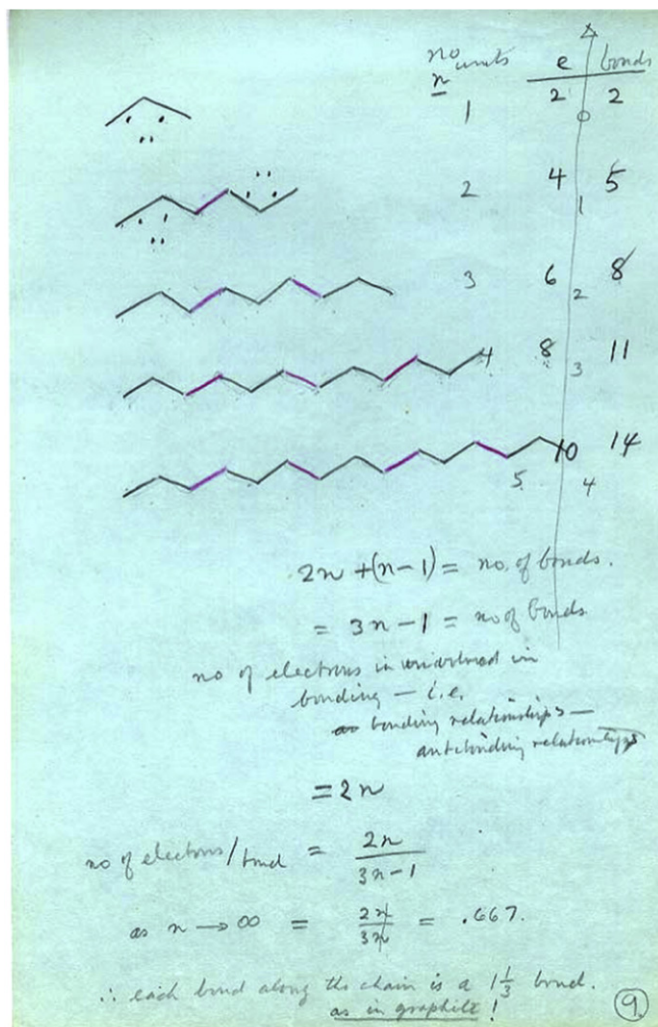 no units e bonds
n
1 2 2
0
2 4 5
1
3 6 8
2
4 8 11
3
10 14
5 4
2n + (n - 1) = no. of bonds.
= 3n - 1 = no of bonds
no of electrons in
bonding — i.e.
bonding relationships —
antibonding relationships
= 2n
no of electrons/bond = 2n
3n - 1
as n → ∞ = 2n = .667.
3n
∴ each bond along the chain is a 1 1/3 bond.
as in graphite !
9